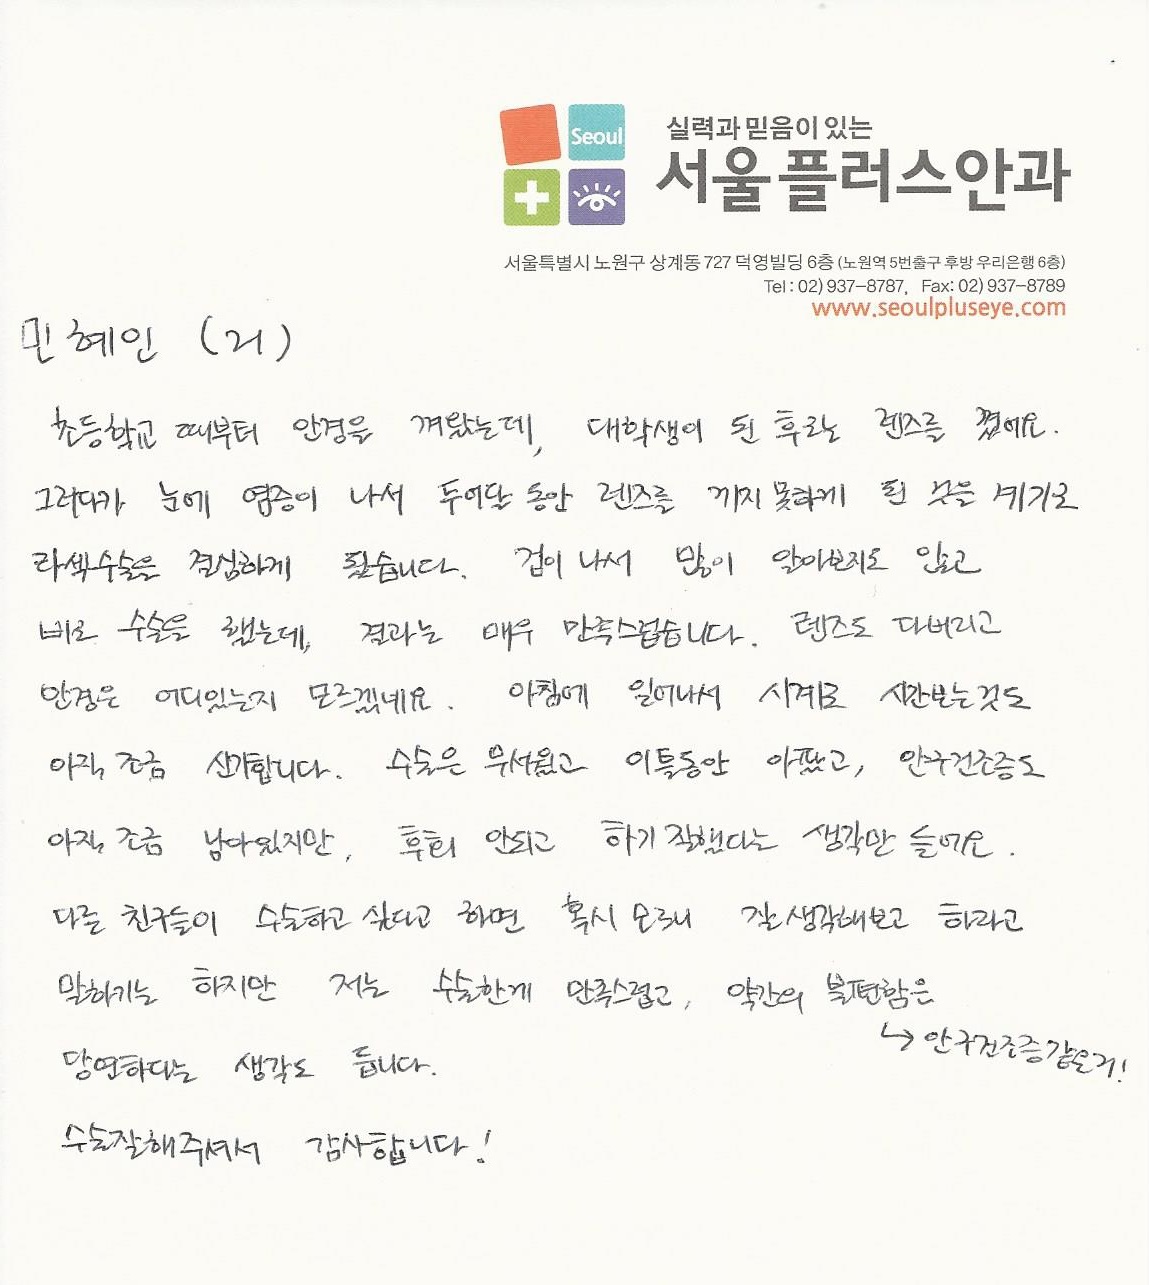 Seoul
실력과 믿음이 있는
서울플러스안과
서울특별시 노원구 상계동 727 덕영빌딩 6층 (노원역 5번출구 후방 우리은행 6층)
Tel : 02) 937-8787, Fax: 02) 937-8789
www.seoulpluseye.com
민혜인 (21)
초등학교 때부터 안경을 껴왔는데, 대학생이 된 후로는 렌즈를 꼈어요.
그러다가 눈에 염증이 나서 두어달 동안 렌즈를 끼지 못하게 된 것을 계기로
라섹수술을 결심하게 됐습니다. 겁이 나서 많이 알아보지도 않고
바로 수술을 했는데, 결과는 매우 만족스럽습니다. 렌즈도 다버리고
안경은 어디있는지 모르겠네요. 아침에 일어나서 시계로 시간보는것도
아직 조금 신기합니다. 수술은 무서웠고 이틀동안 아팠고, 안구건조증도
아직 조금 남아있지만, 후회 안되고 하기 잘했다는 생각만 들어요.
다른 친구들이 수술하고 싶다고 하면 혹시 모르니 잘 생각해보고 하라고
말하기는 하지만 저는 수술한게 만족스럽고, 약간의 불편함은
↳ 안구건조증같은거!
당연하다는 생각도 듭니다.
수술잘해주셔서 감사합니다!